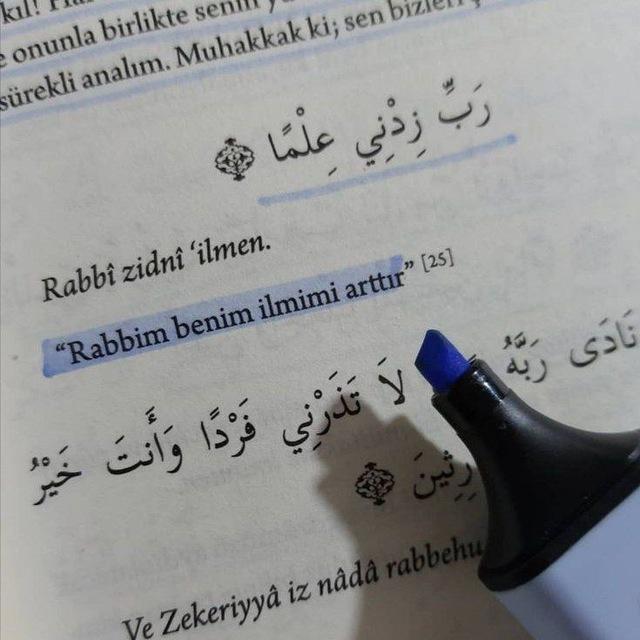 onunla birlikte senin
sürekli analım. Muhakkak ki; sen bizleri
رَبِّ زِدْنِي عِلْمًا
Rabbî zidnî ‘ilmen.
“Rabbim benim ilmimi arttır” [25]
نَادَى رَبَّهُ لَا تَذَرْنِي فَرْدًا وَأَنتَ خَيْرُ
Ve Zekeriyyâ iz nâdâ rabbehu